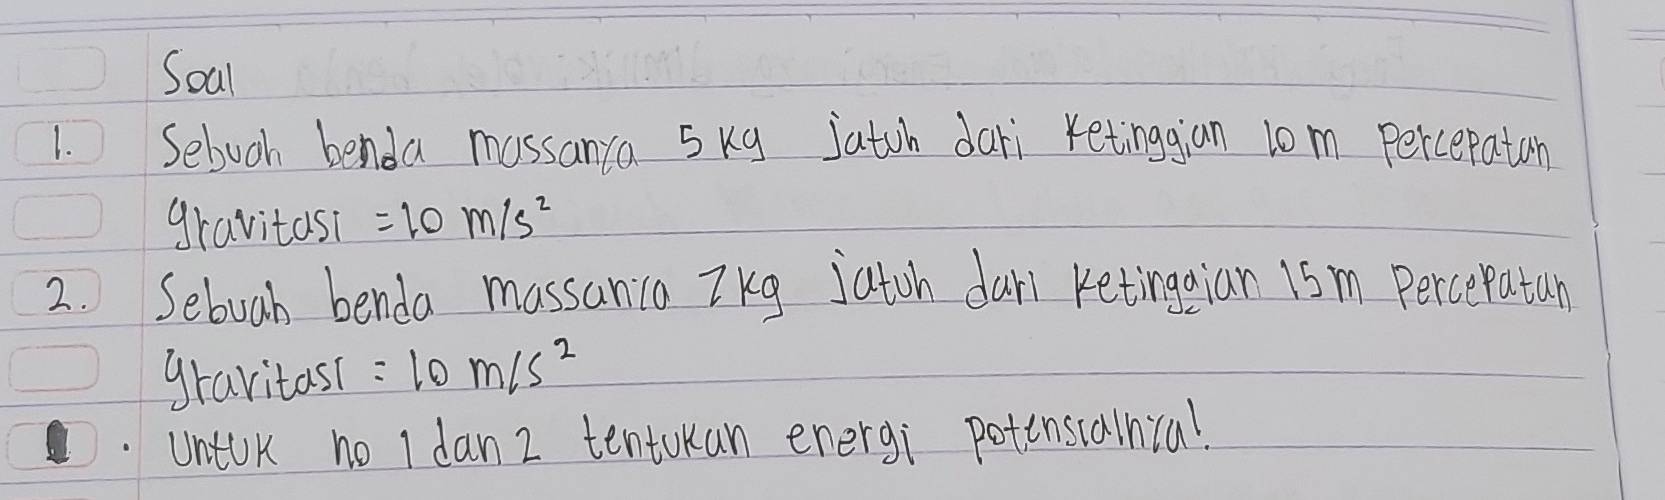 Soal
1. Sebuah benda massanya 5 kg jatuh dari ketinggian 10 m percepatan
gravitasi = 10 m/s²
2. Sebuah benda massanya 7 kg jatuh dari ketinggian 15 m percepatan
gravitasi = 10 m/s²
• Untuk no 1 dan 2 tentukan energi potensialnya!